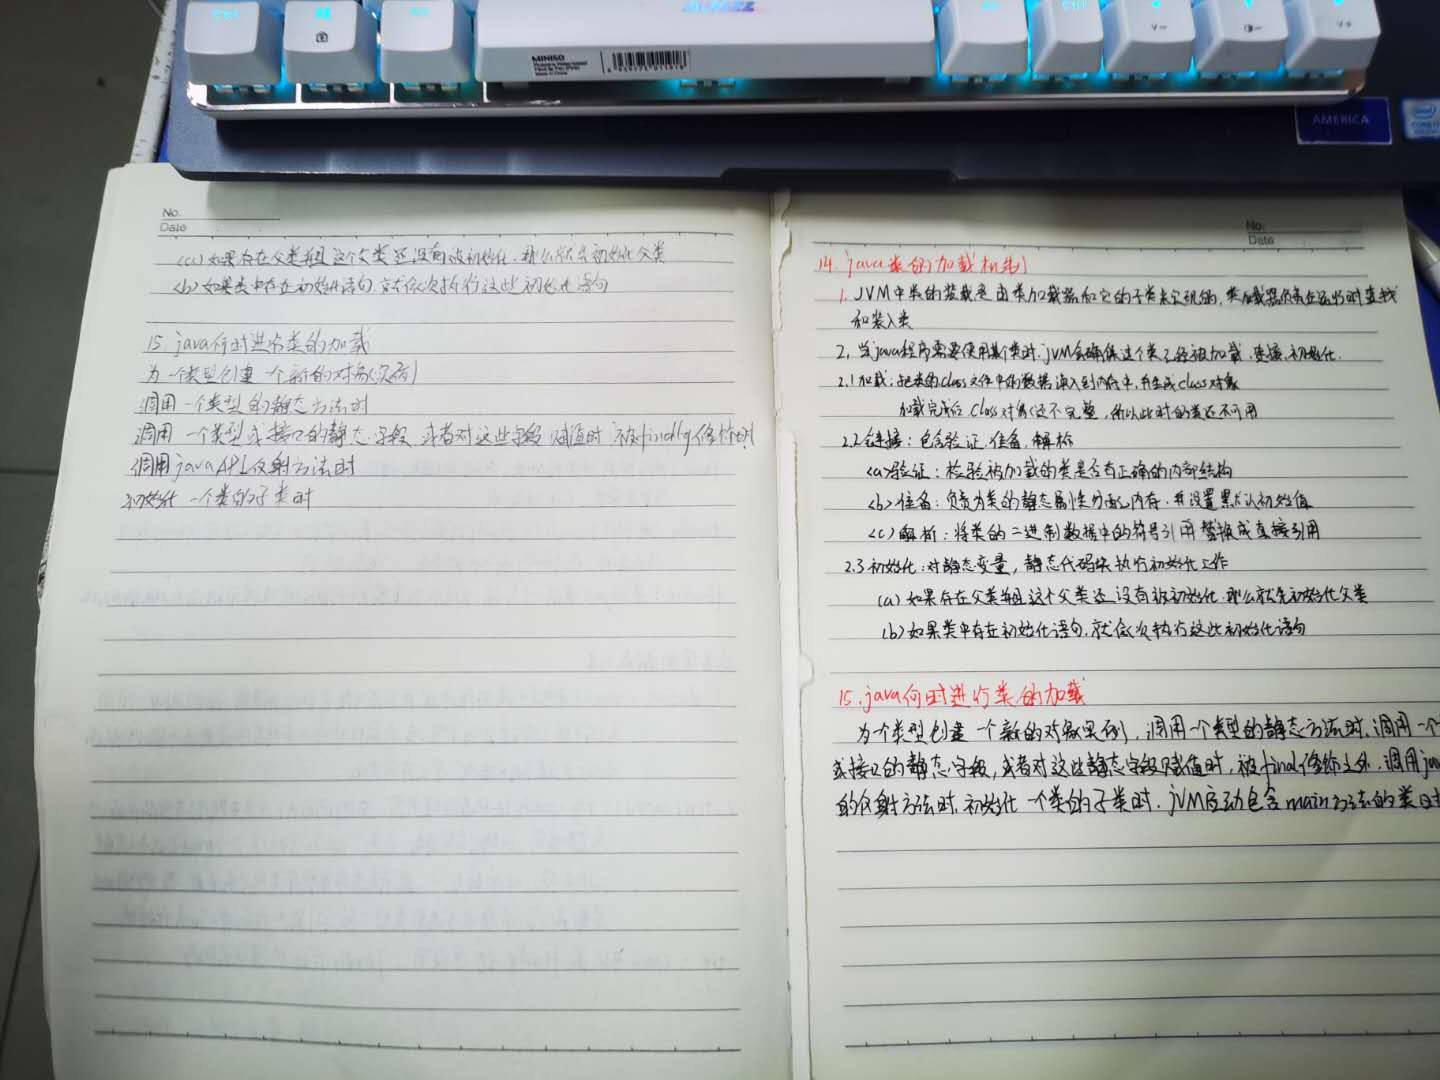 Ctrl
Alt
Ctrl
MINISO
AMERICA
intel
CORE
No.
Date
(a)如果存在父类并且这个父类还没有被初始化，那么就先初始化父类
(b)如果类中存在初始化语句，就依次执行这些初始化语句
15 java何时进行类的加载
为一个类型创建一个新的对象(实例)
调用一个类型的静态方法时
调用一个类型或接口的静态字段，或者对这些字段赋值时 不被finally修饰时
调用java API反射方法时
初始化一个类的子类时
No.
Date
14. java类的加载机制
1. JVM中类的装载是由类加载器和它的子类来实现的，类加载器负责在运行时查找
和装入类
2. 当java程序需要使用某个类时，JVM会确保这个类已经被加载，连接，初始化.
2.1加载：把类的class文件中的数据读入到内存中，并生成class对象
加载完成后 class对象还不完整，所以此时的类还不可用
2.2链接：包含验证，准备，解析
<a>验证：检验被加载的类是否有正确的内部结构
<b>准备：负责为类的静态属性分配内存，并设置默认初始值
<c>解析：将类的二进制数据中的符号引用替换成直接引用
2.3 初始化：对静态变量，静态代码块执行初始化工作
(a)如果存在父类并且这个父类还没有被初始化，那么就先初始化父类
(b)如果类中存在初始化语句，就依次执行这些初始化语句
15.java何时进行类的加载
为一个类型创建一个新的对象实例，调用一个类型的静态方法时，调用一个
或接口的静态字段，或者对这些静态字段赋值时，被final修饰之外，调用jav
的反射方法时，初始化一个类的子类时，JVM启动包含main方法的类时